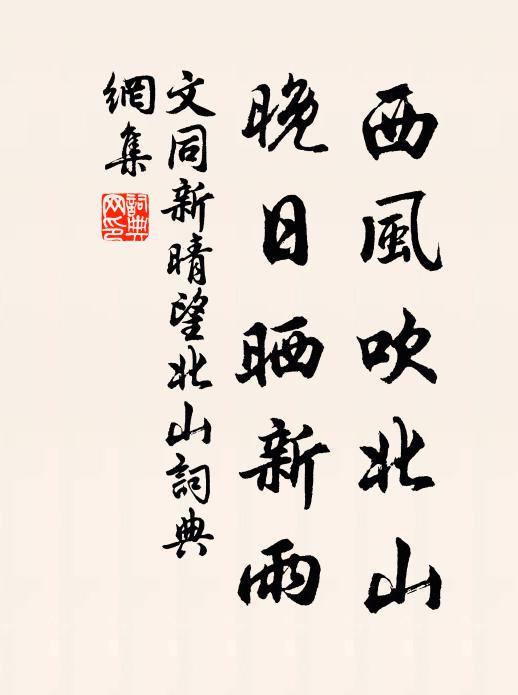 西風吹北山
晚日晒新雨
文同新晴望北山詞典
網集
詞典
网印